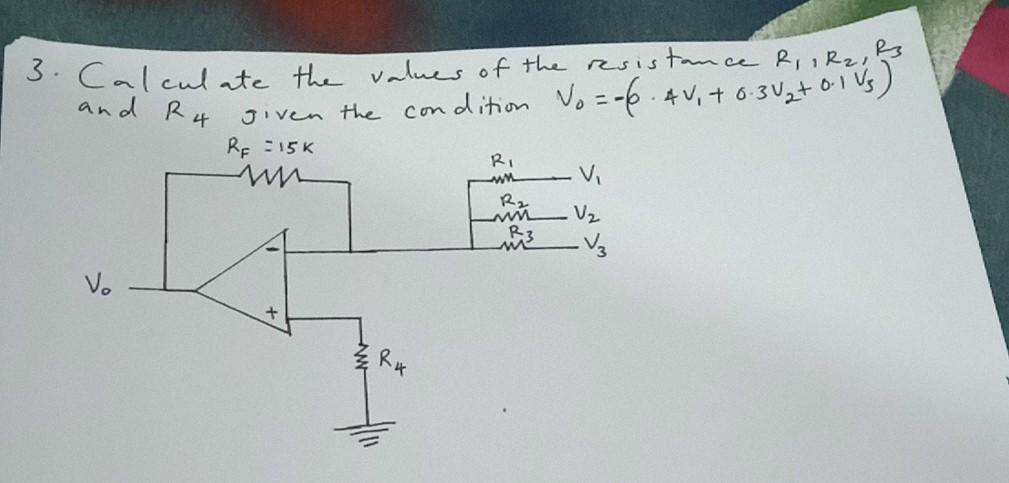 3. Calculate the values of the resistance R₁, R₂, R₃
and R₄ given the condition V₀ = -(0.4V₁ + 0.3V₂ + 0.1V₃)
R_F = 15K
R₁
V₁
R₂
V₂
R₃
V₃
-
V₀
+
R₄